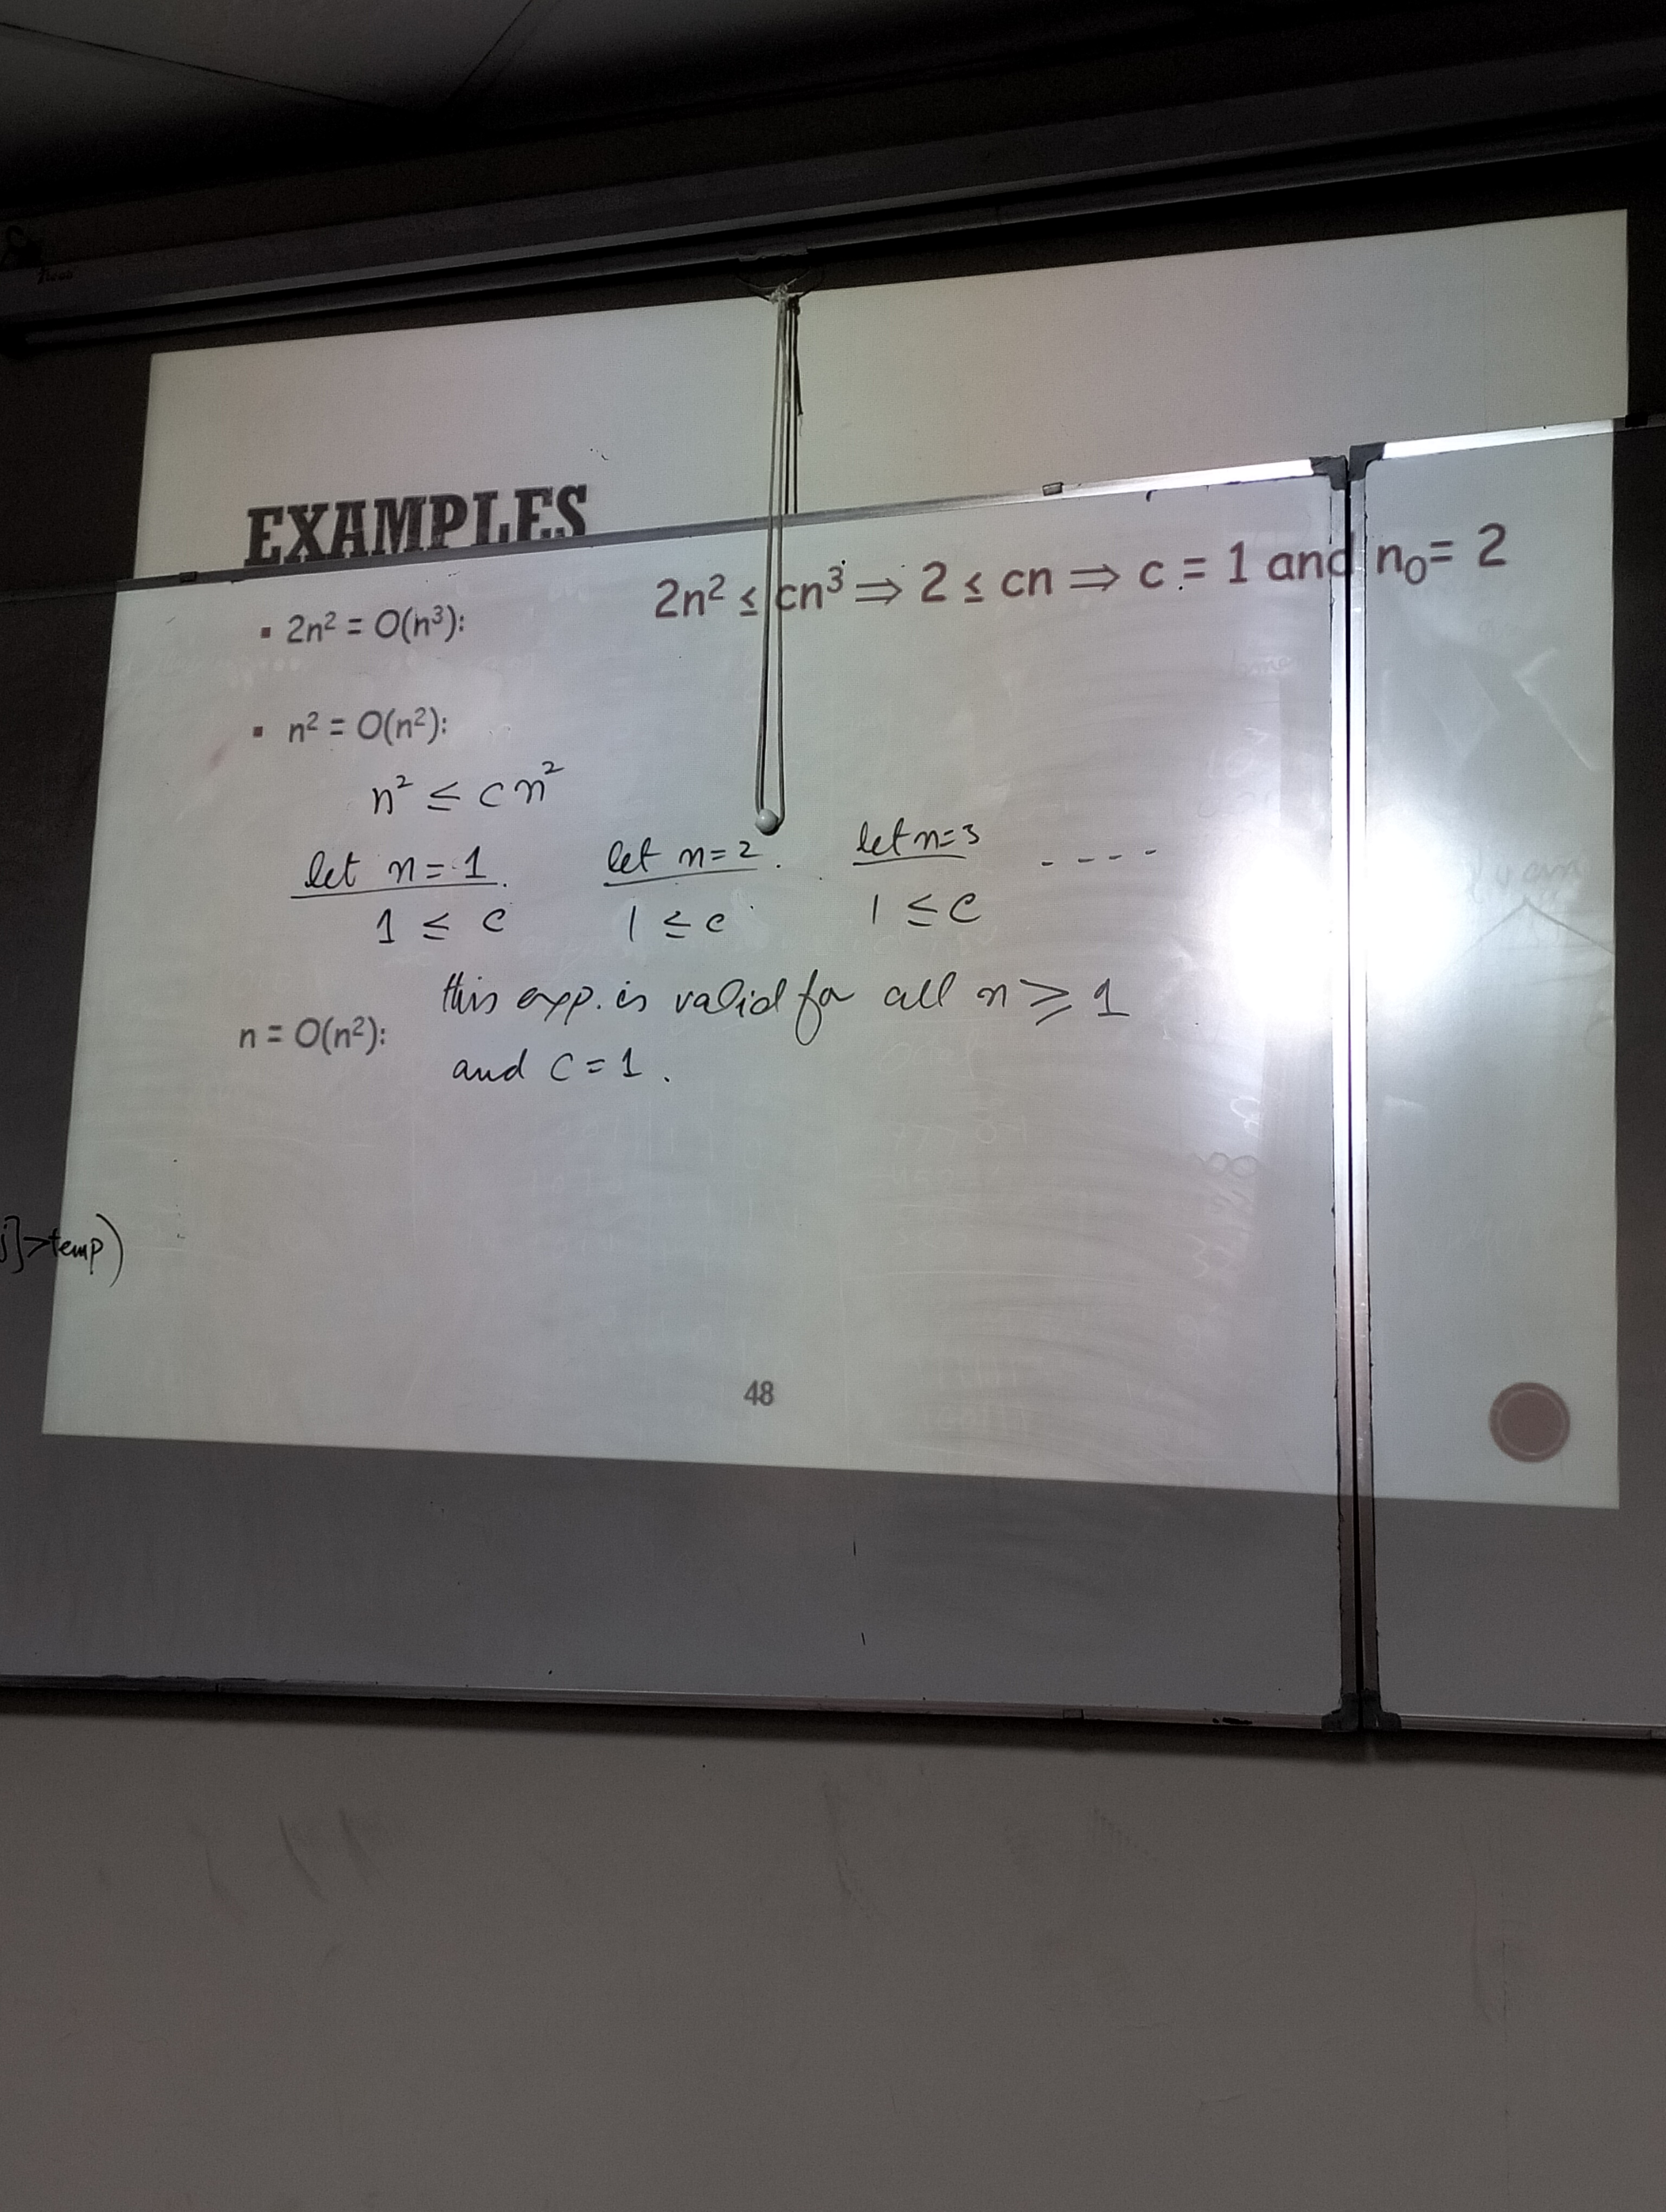 EXAMPLES
2n² ≤ cn³ ⇒ 2 ≤ cn ⇒ c = 1 and n₀= 2
▪ 2n² = O(n³):
▪ n² = O(n²):
n² ≤ cn²
let n=1 let n=2. let n=3 - - - -
1 ≤ c 1 ≤ c 1 ≤ c
this exp. is valid for all n ≥ 1
n = O(n²):
and c = 1.
j]>temp)
48